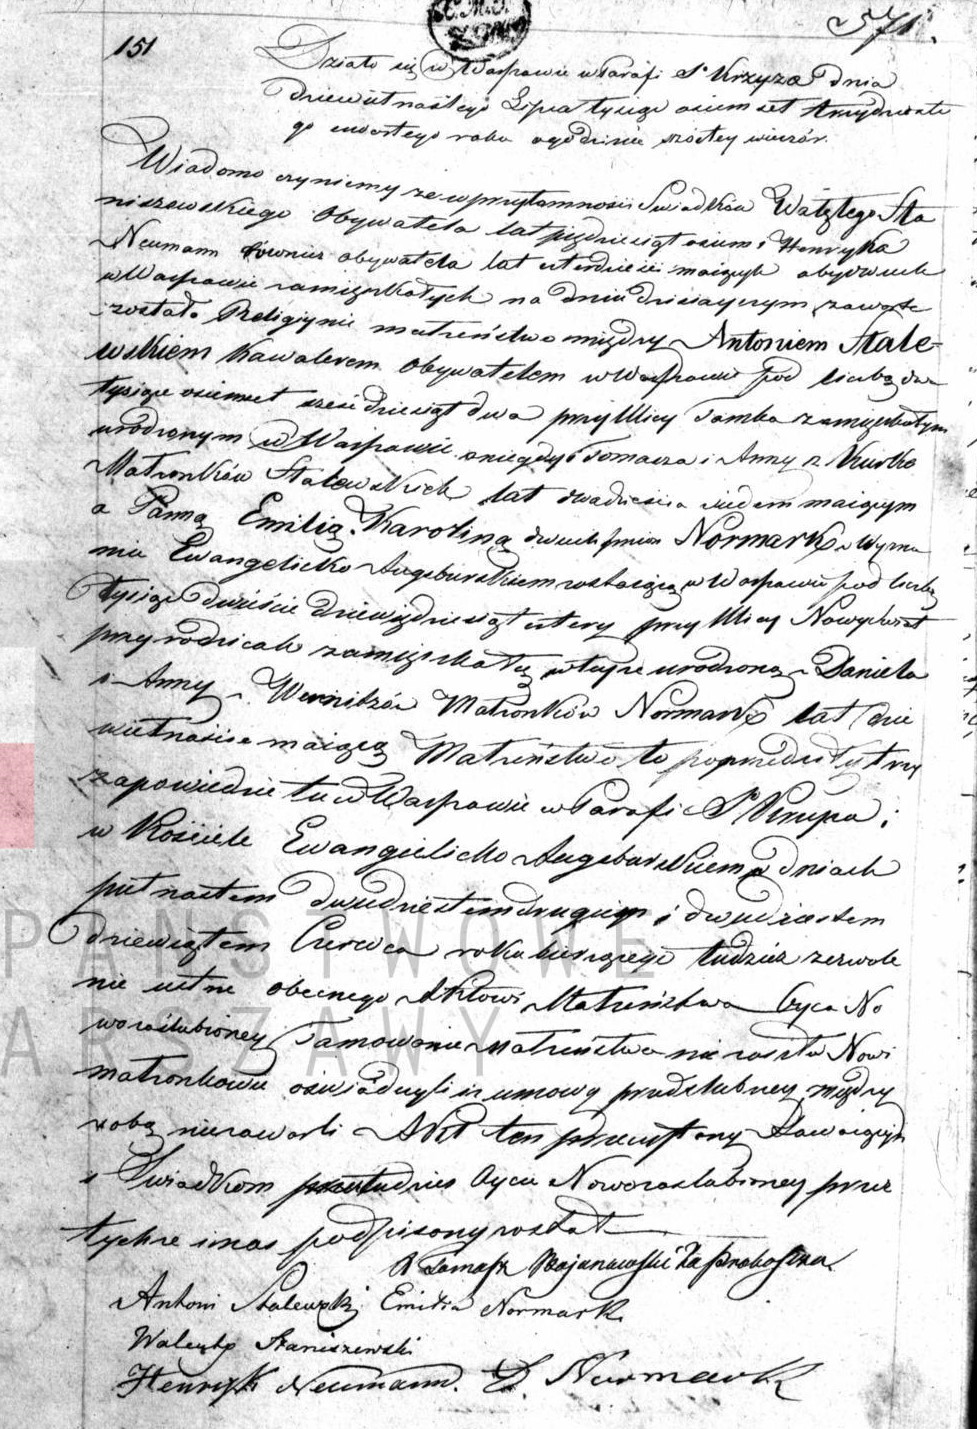 571.
151
Działo się w Warszawie w Parafi Sº Krzyża dnia
dziewiętnastego Lipca tysiąc ośiemset trzydzieste
go czwartego roku o godzinie szóstey wieczór.
Wiadomo czyniemy że w przytomności Świadków Walętego Sta
niszewskiego Obywatela lat pięćdziesiąt ośiem i Henryka
Neumann równiez obywatela lat czterdzieści maiących obydwuch
w Warszawie zamięszkałych na dniu dzisiayszym zawarte
zostało Religiynie małżeństwo między Antoniem Stale-
wskiem Kawalerem Obywatelem w Warszawie pod liczbą dwa
tysiące ośiemset sześćdziesiąt dwa przy Ulicy Tamka zamięszkałym
urodzonym w Warszawie z niegdy Tomasza i Anny z
Małżonków Stalewskich lat dwadzieścia siedem maiącym
a Panną Emilią Karoliną dwuch Imion Normark, Wyzna
nia Ewangelicko Augsburskiem zostaiącą w Warszawie pod liczbą
tysiąc dwieście dziewięćdziesiąt cztery przy Ulicy Nowyświat
przy rodzicach zamięszkałą, w tejże urodzoną z Daniela
i Anny z Małżonków Normark lat dzie
więtnaście maiącą Małżeństwo to poprzedziły trzy
zapowiedzie tu w Warszawie w Parafi Sº Krzyża i
w Kościele Ewangielicko Augsburskiem w dniach
piętnastem dwudziestem drugiem i dwudziestem
dziewiątem Czerwca roku bieżącego tudzież zezwole
nie ustne obecnego Aktowi Małżeństwa Oyca No
wozaślubioney Tamowanie Małżeństwa nie zaszło Nowi
małżonkowie oświadczyli iż umowy przedślubney między
sobą niezawarli Akt ten przeczytany Stawaiącym
i Świadkom tudzież Oycu Nowozaślubioney przez
tychże i nas podpisany został
X Tomasz Bojanowski Za Proboszcza.
Antoni Stalewski Emilia Normark
Walęty Staniszewski
Henryk Neumann. D. Normark
PAŃSTWOWE
ARSZAWY